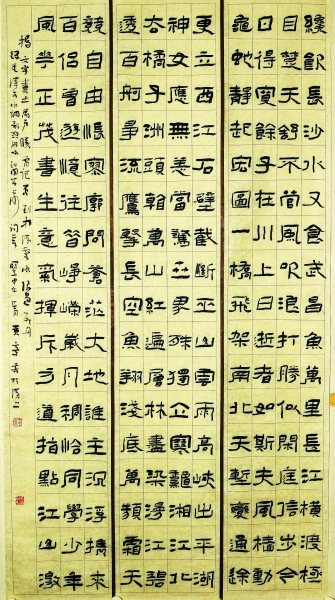 纔飲長沙水又食武昌魚萬里長江橫渡極
目楚天舒不管風吹浪打勝似閑庭信步今
日得寬餘子在川上曰逝者如斯夫風檣動
龜蛇靜起宏圖一橋飛架南北天塹變通途
更立西江石壁截斷巫山雲雨高峽出平湖
神女應無恙當驚世界殊獨立寒龝湘江北
去橘子洲頭看萬山紅遍層林盡染漫江碧
透百舸爭流鷹擊長空魚翔淺底萬類霜天
競自由悵寥廓問蒼茫大地誰主沉浮攜來
百侶曾遊憶往昔崢嶸歲月稠恰同學少年
風華正茂書生意氣揮斥方遒指點江山激
揚文字糞土當年萬戶侯曾記否到中流擊水浪遏飛舟